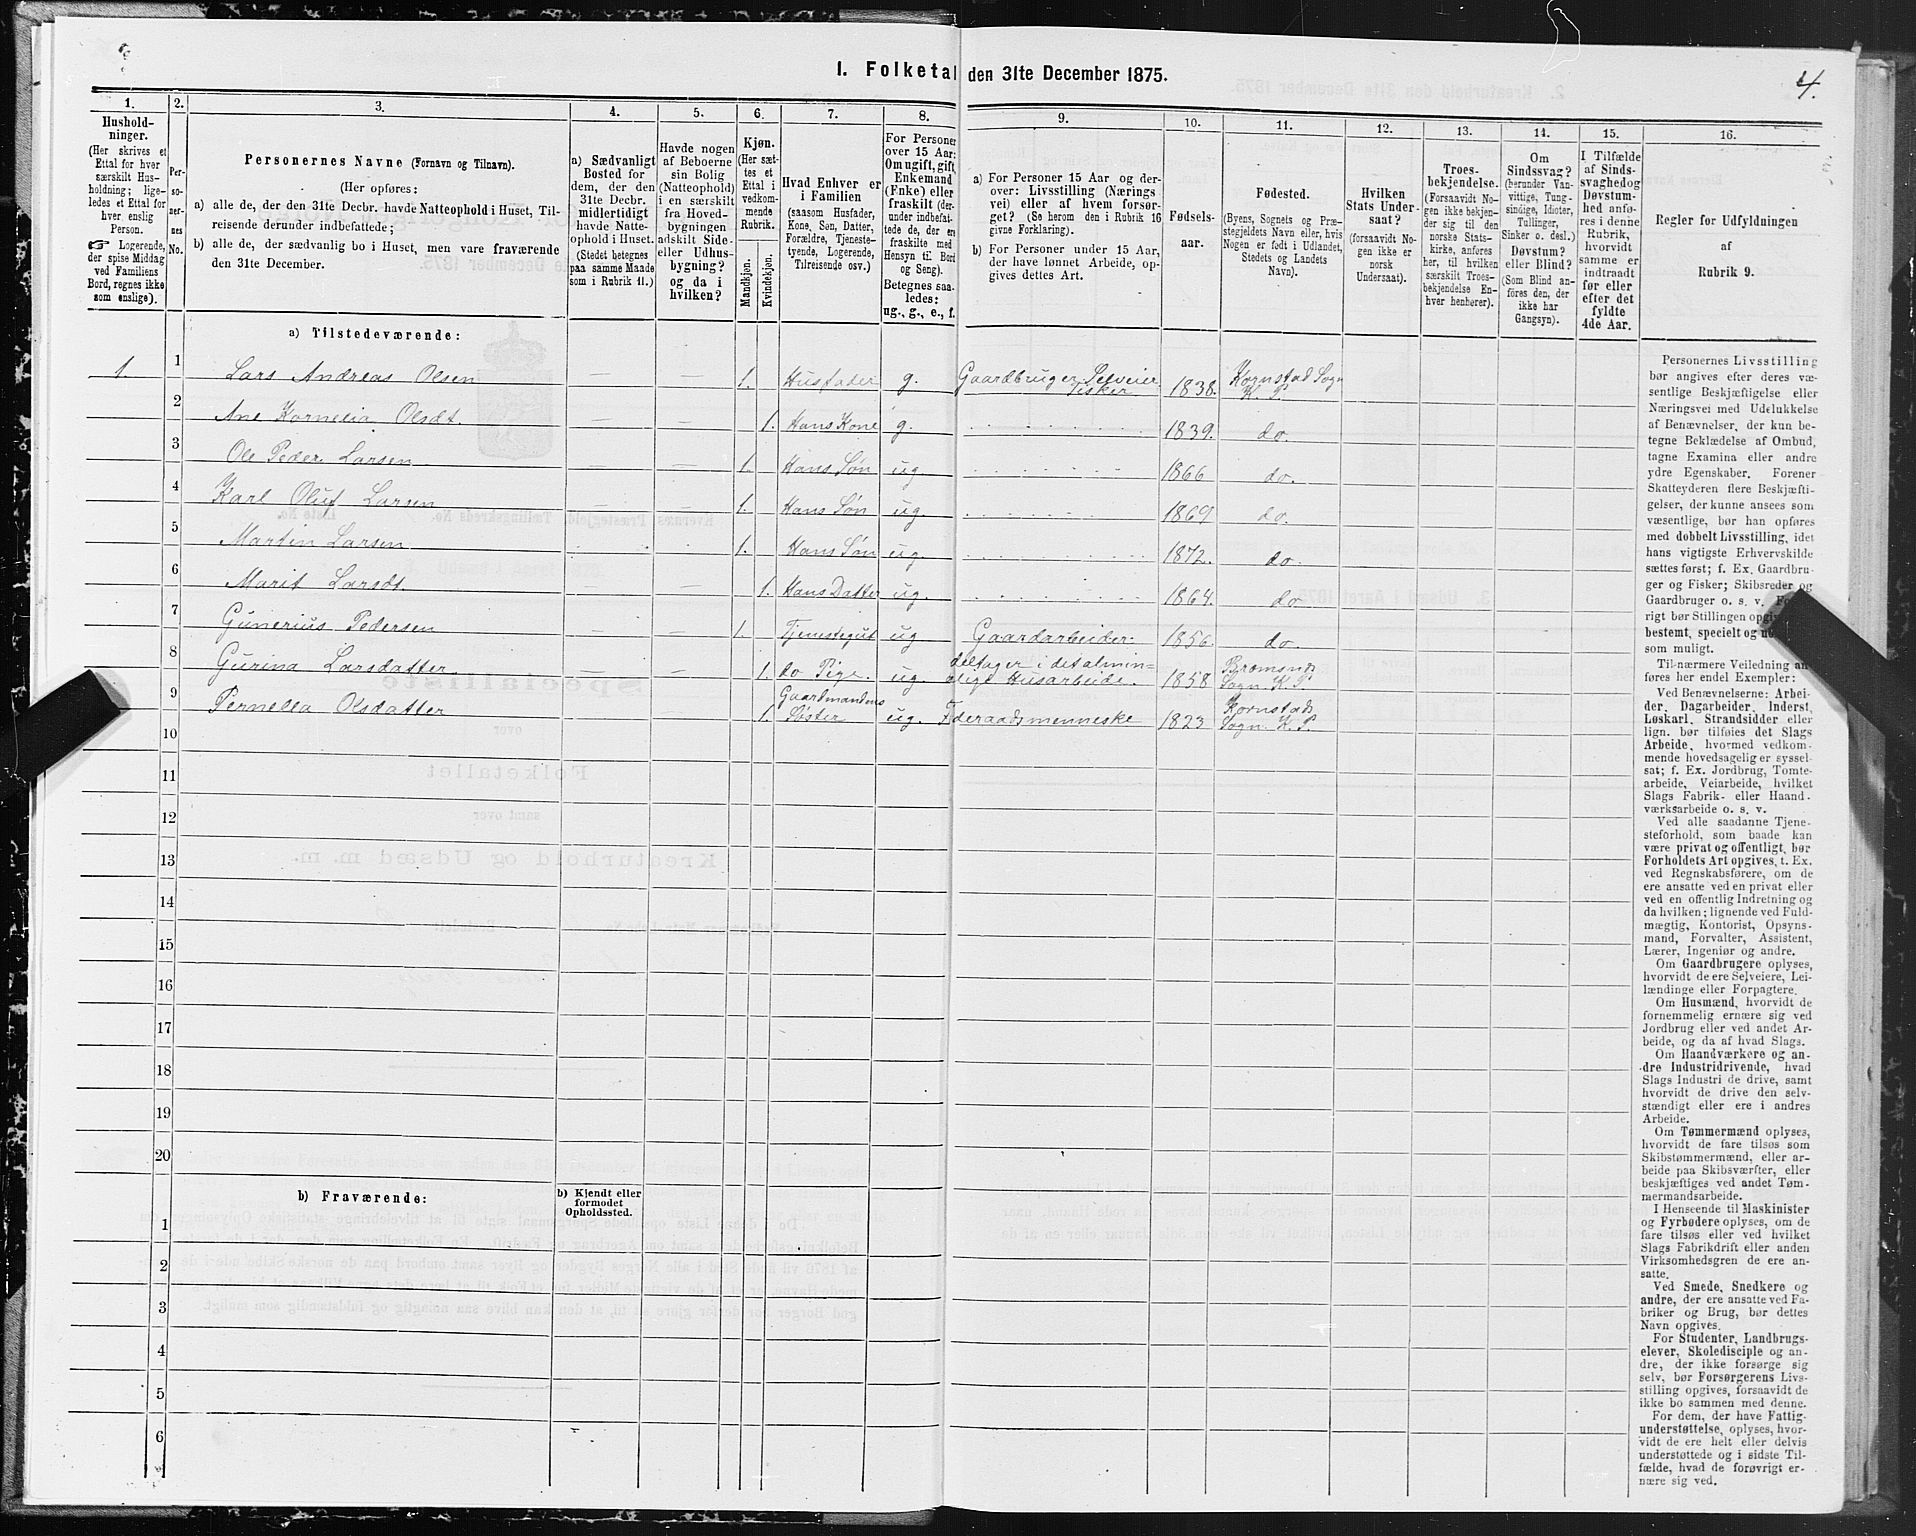 I. Folketal den 31te December 1875.
4.
1.
Hushold-
ninger.
(Her skrives et
Ettal for hver
særskilt Hus-
holdning; lige-
ledes et Ettal for
hver enslig
Person.
☞ Logerende,
der spise Middag
ved Familiens
Bord, regnes ikke
som enslige).
2.
Per-
so-
ner-
nes
No.
3.
Personernes Navne (Fornavn og Tilnavn).
(Her opføres:
a) alle de, der den 31te Decbr. havde Natteophold i Huset, Til-
reisende derunder indbefattede;
b) alle de, der sædvanlig bo i Huset, men vare fraværende
den 31te December.
4.
a) Sædvanligt
Bosted for
dem, der den
31te Decbr.
midlertidigt
havde Natte-
ophold i Huset.
(Stedet betegnes
paa samme Maade
som i Rubrik 11.)
5.
Havde nogen
af Beboerne
sin Bolig
(Natteophold)
i en særskilt
fra Hoved-
bygningen
adskilt Side-
eller Udhus-
bygning?
og da i
hvilken?
6.
Kjøn.
(Her sæt-
tes et
Ettal i
vedkom-
mende
Rubrik.
Mandkjøn.
Kvindekjøn.
7.
Hvad Enhver er
i Familien
(saasom Husfader,
Kone, Søn, Datter,
Forældre, Tjeneste-
tyende, Logerende,
Tilreisende osv.)
8.
For Personer
over 15 Aar:
Om ugift, gift,
Enkemand
(Enke) eller
fraskilt (der-
under indbefat-
tede de, der ere
fraskilte med
Hensyn til Bord
og Seng).
Betegnes saa-
ledes:
ug., g., e., f.
9.
a) For Personer 15 Aar og der-
over: Livsstilling (Nærings-
vei) eller af hvem forsør-
get? (Se herom den i Rubrik 16
givne Forklaring).
b) For Personer under 15 Aar,
der have lønnet Arbeide, op-
gives dettes Art.
10.
Fødsels-
aar.
11.
Fødested.
(Byens, Sognets og Præ-
stegjeldets Navn eller, hvis
Nogen er født i Udlandet,
Stedets og Landets
Navn).
12.
Hvilken
Stats Under-
saat?
(forsaavidt No-
gen ikke er
norsk
Undersaat).
13.
Troes-
bekjendelse.
(Forsaavidt No-
gen ikke bekjen-
der sig til den
norske Stats-
kirke, anføres
her, til hvilken
særskilt Troes-
bekjendelse En-
hver henhører).
14.
Om
Sindssvag?
(herunder Van-
vittige, Tung-
sindige, Idioter,
Tullinger,
Sinker o. desl.)
Døvstum?
eller Blind?
(Som Blind an-
føres den, der
ikke har
Gangsyn).
15.
I Tilfælde
af Sinds-
svaghed og
Døvstum-
hed anfø-
res i denne
Rubrik,
hvorvidt
samme er
indtraadt
før eller
efter det
fyldte
4de Aar.
16.
Regler for Udfyldningen
af
Rubrik 9.
a) Tilstedeværende:
1 1 Lars Andreas Olsen — — 1. Husfader g. Gaardbruger Selveier Fisker 1838. Kornstad Sogn K. P.
2 Ane Kornelia Olsdt. — — 1. Hans Kone g. 1839. do.
3 Ole Peder Larsen — — 1. Hans Søn ug. 1866 do.
4 Karl Oluf Larsen — — 1. Hans Søn ug. 1869 do.
5 Martin Larsen 1. Hans Søn ug. 1872. do.
6 Marit Larsdt. — 1. Hans Datter ug. 1864. do
7 Gunerius Pedersen — — 1. Tjenestegut ug Gaardarbeider. 1856. do.
8 Gurina Larsdatter — — 1. do Pige. ug. deltager i det almin=
delige Husarbeide. 1858 Bremsnes
Sogn. K. P.
9 Pernella Olsdatter 1. Gaardmandens
Søster ug. Føderaadsmenneske 1823 Kornstads
Sogn. K. P.
10
11
12
13
14
15
16
17
18
19
20
b) Fraværende:
b) Kjendt eller
formodet
Opholdssted.
1
2
3
4
5
6
Personernes Livsstilling
bør angives efter deres væ-
sentlige Beskjæftigelse eller
Næringsvei med Udelukkelse
af Benævnelser, der kun be-
tegne Beklædelse af Ombud,
tagne Examina eller andre
ydre Egenskaber. Forener
Skatteyderen flere Beskjæfti-
gelser, der kunne ansees som
væsentlige, bør han opføres
med dobbelt Livsstilling, idet
hans vigtigste Erhvervskilde
sættes først; f. Ex. Gaardbru-
ger og Fisker; Skibsreder og
Gaardbruger o. s. v.
rigt bør Stillingen
bestemt, specielt og
som muligt.
Til nærmere Veiledning
føres her endel Exempler:
Ved Benævnelserne: Arbei-
der, Dagarbeider, Inderst,
Løskarl, Strandsidder eller
lign. bør tilføies det Slags
Arbeide, hvormed vedkom-
mende hovedsagelig er syssel-
sat; f. Ex. Jordbrug, Tomte-
arbeide, Veiarbeide, hvilket
Slags Fabrik- eller Haand-
værksarbeide o. s. v.
Ved alle saadanne Tjene-
steforhold, som baade kan
være privat og offentligt, bør
Forholdets Art opgives, t. Ex.
ved Regnskabsførere, om de
ere ansatte ved en privat eller
ved en offentlig Indretning og
da hvilken; lignende ved Fuld-
mægtig, Kontorist, Opsyns-
mand, Forvalter, Assistent,
Lærer, Ingeniør og andre.
Om Gaardbrugere oplyses,
hvorvidt de ere Selveiere, Lei-
lændinge eller Forpagtere.
Om Husmænd, hvorvidt de
fornemmelig ernære sig ved
Jordbrug eller ved andet Ar-
beide, og da af hvad Slags.
Om Haandværkere og an-
dre Industridrivende, hvad
Slags Industri de drive, samt
hvorvidt de drive den selv-
stændigt eller ere i andres
Arbeide.
Om Tømmermænd oplyses,
hvorvidt de fare tilsøs som
Skibstømmermænd, eller ar-
beide paa Skibsværfter, eller
beskjæftiges ved andet Tøm-
mermandsarbeide.
I Henseende til Maskinister
og Fyrbødere oplyses, om de
fare tilsøs eller ved hvilket
Slags Fabrikdrift eller anden
Virksomhedsgren de ere an-
satte.
Ved Smede, Snedkere og
andre, der ere ansatte ved Fa-
briker og Brug, bør dettes
Navn opgives.
For Studenter, Landbrugs-
elever, Skoledisciple og an-
dre, der ikke forsørge sig
selv, bør Forsørgerens Livs-
stilling opgives, forsaavidt de
ikke bo sammen med denne.
For dem, der have Fattig-
understøttelse, oplyses, hvor-
vidt de ere helt eller delvis
understøttede og i sidste Til-
fælde, hvad de forøvrigt er-
nære sig ved.